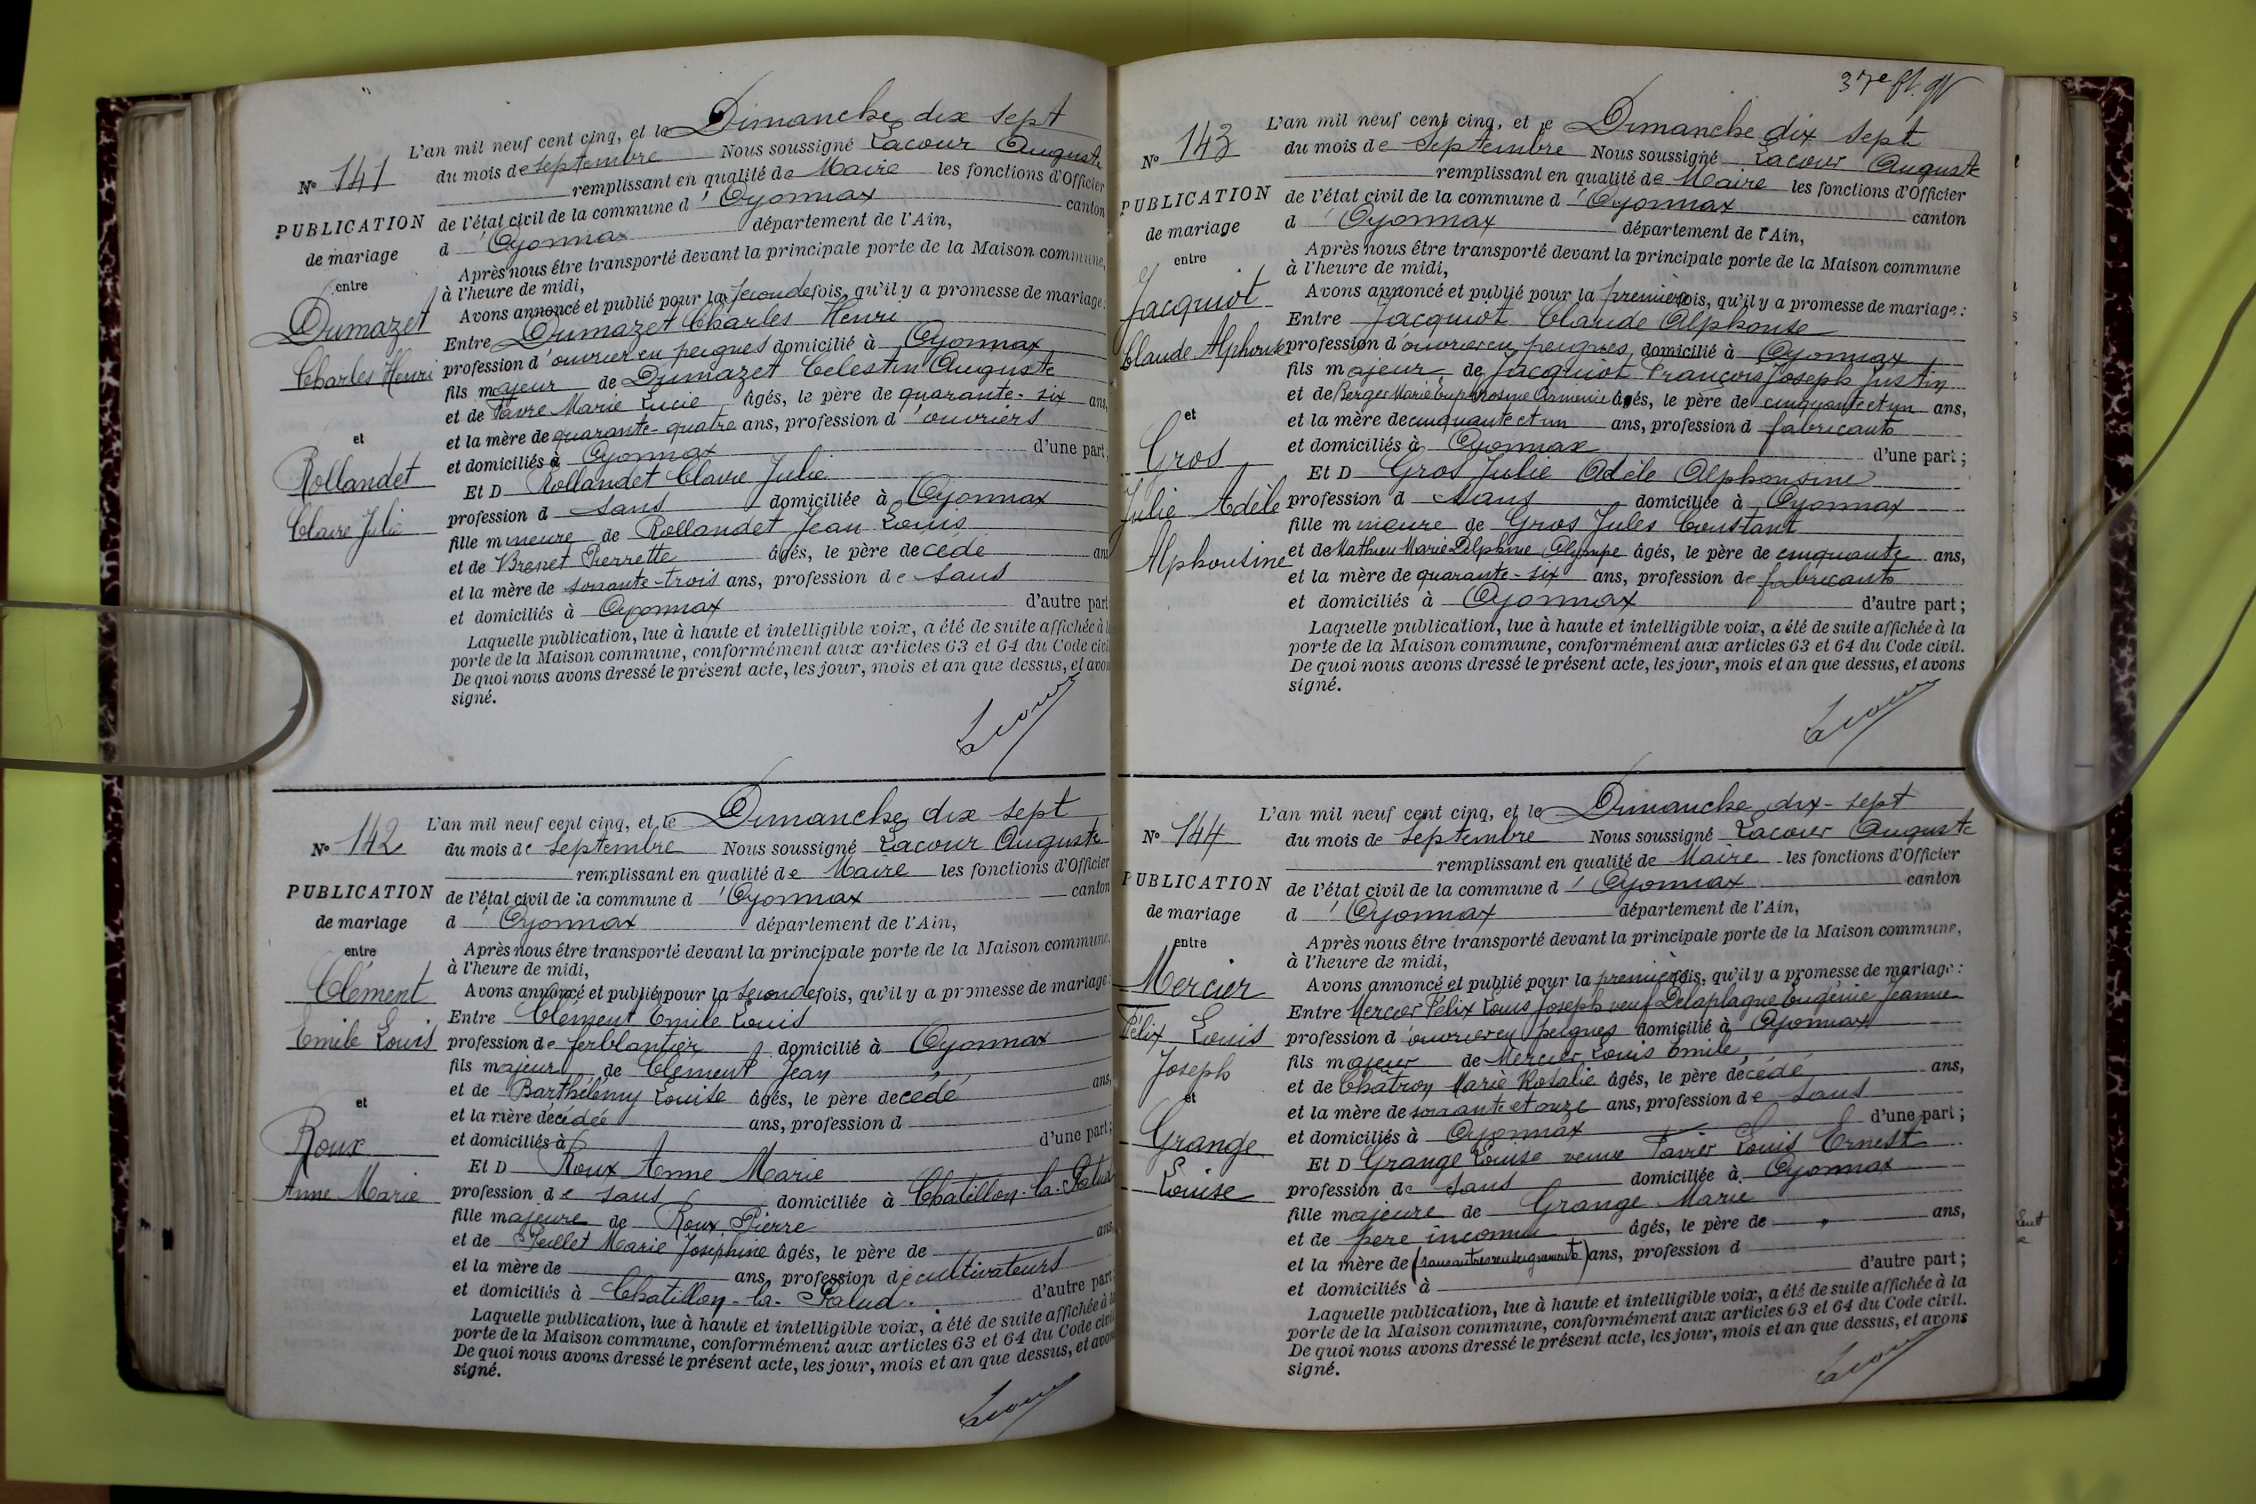 L'an mil neuf cent cinq, et le Dimanche dix sept
du mois de septembre Nous soussigné Lacour Auguste
remplissant en qualité de Maire les fonctions d'Officier
de l'état civil de la commune d'Oyonnax canton
d'Oyonnax département de l'Ain,
Après nous être transporté devant la principale porte de la Maison commune,
à l'heure de midi,
Avons annoncé et publié pour la seconde fois, qu'il y a promesse de mariage:
Entre Dumazet Charles Henri
profession d'ouvrier en peignes domicilié à Oyonnax
fils majeur de Dumazet Celestin Auguste
et de Favre Marie Lucie âgés, le père de quarante-six ans,
et la mère de quarante-quatre ans, profession d'ouvriers
et domiciliés à Oyonnax d'une part;
Et D Rollandet Claire Julie
profession d sans domiciliée à Oyonnax
fille mineure de Rollandet Jean Louis
et de Brenet Pierrette âgés, le père décédé ans
et la mère de soixante-trois ans, profession de sans
et domiciliés à Oyonnax d'autre part
Laquelle publication, lue à haute et intelligible voix, a été de suite affichée à la
porte de la Maison commune, conformément aux articles 63 et 64 du Code civil
De quoi nous avons dressé le présent acte, les jour, mois et an que dessus, et avons
signé.
Lacour
N° 141
PUBLICATION
de mariage
entre
Dumazet
Charles Henri
et
Rollandet
Claire Julie
L'an mil neuf cent cinq, et le Dimanche dix sept
du mois de septembre Nous soussigné Lacour Auguste
remplissant en qualité de Maire les fonctions d'Officier
de l'état civil de la commune d'Oyonnax canton
d'Oyonnax département de l'Ain,
Après nous être transporté devant la principale porte de la Maison commune.
à l'heure de midi,
Avons annoncé et publié pour la seconde fois, qu'il y a promesse de mariage:
Entre Clément Emile Louis
profession de ferblantier domicilié à Oyonnax
fils majeur de Clément Jean
et de Barthélemy Louise âgés, le père décédé ans,
et la mère décédée ans, profession d
et domiciliés à d'une part;
Et D Roux Anne Marie
profession de sans domiciliée à Chatillon-la-Palud
fille majeure de Roux Pierre
et de Jeullet Marie Joséphine âgés, le père de ans
et la mère de ans, profession de cultivateurs
et domiciliés à Chatillon-la-Palud. d'autre part
Laquelle publication, lue à haute et intelligible voix, a été de suite affichée à la
porte de la Maison commune, conformément aux articles 63 et 64 du Code civil
De quoi nous avons dressé le présent acte, les jour, mois et an que dessus, et avons
signé.
Lacour
N° 142
PUBLICATION
de mariage
entre
Clément
Emile Louis
et
Roux
Anne Marie
37e ft.
L'an mil neuf cent cinq, et le Dimanche dix sept
du mois de septembre Nous soussigné Lacour Auguste
remplissant en qualité de Maire les fonctions d'Officier
de l'état civil de la commune d'Oyonnax canton
d'Oyonnax département de l'Ain,
Après nous être transporté devant la principale porte de la Maison commune
à l'heure de midi,
Avons annoncé et publié pour la première fois, qu'il y a promesse de mariage:
Entre Jacquiot Claude Alphonse
profession d'ouvrier en peignes domicilié à Oyonnax
fils majeur de Jacquiot François Joseph Justin
et de Berger Marie Euphrosine Armenie âgés, le père de cinquante et un ans,
et la mère de cinquante et un ans, profession d fabricants
et domiciliés à Oyonnax d'une part;
Et D Gros Julie Adèle Alphonsine
profession d sans domiciliée à Oyonnax
fille mineure de Gros Jules Constant
et de Mathieu Marie Delphine Olympe âgés, le père de cinquante ans,
et la mère de quarante-six ans, profession de fabricants
et domiciliés à Oyonnax d'autre part;
Laquelle publication, lue à haute et intelligible voix, a été de suite affichée à la
porte de la Maison commune, conformément aux articles 63 et 64 du Code civil.
De quoi nous avons dressé le présent acte, les jour, mois et an que dessus, et avons
signé.
Lacour
N° 143
PUBLICATION
de mariage
entre
Jacquiot
Claude Alphonse
et
Gros
Julie Adèle
Alphonsine
L'an mil neuf cent cinq, et le Dimanche dix-sept
du mois de septembre Nous soussigné Lacour Auguste
remplissant en qualité de Maire les fonctions d'Officier
de l'état civil de la commune d'Oyonnax canton
d'Oyonnax département de l'Ain,
Après nous être transporté devant la principale porte de la Maison commune,
à l'heure de midi,
Avons annoncé et publié pour la première fois, qu'il y a promesse de mariage:
Entre Mercier Félix Louis Joseph veuf Delaplagne Eugénie Jeanne
profession d'ouvrier en peignes domicilié à Oyonnax
fils majeur de Mercier Louis Emile
et de Châtron Marie Rosalie âgés, le père décédé ans,
et la mère de soixante et onze ans, profession de sans
et domiciliés à Oyonnax d'une part;
Et D Grange Louise veuve Tavier Louis Ernest
profession de sans domiciliée à Oyonnax
fille majeure de Grange Marie
et de père inconnu âgés, le père de ans,
et la mère de (sans autres renseignements) ans, profession d
et domiciliés à d'autre part;
Laquelle publication, lue à haute et intelligible voix, a été de suite affichée à la
porte de la Maison commune, conformément aux articles 63 et 64 du Code civil.
De quoi nous avons dressé le présent acte, les jour, mois et an que dessus, et avons
signé.
Lacour
N° 144
PUBLICATION
de mariage
entre
Mercier
Félix Louis
Joseph
et
Grange
Louise